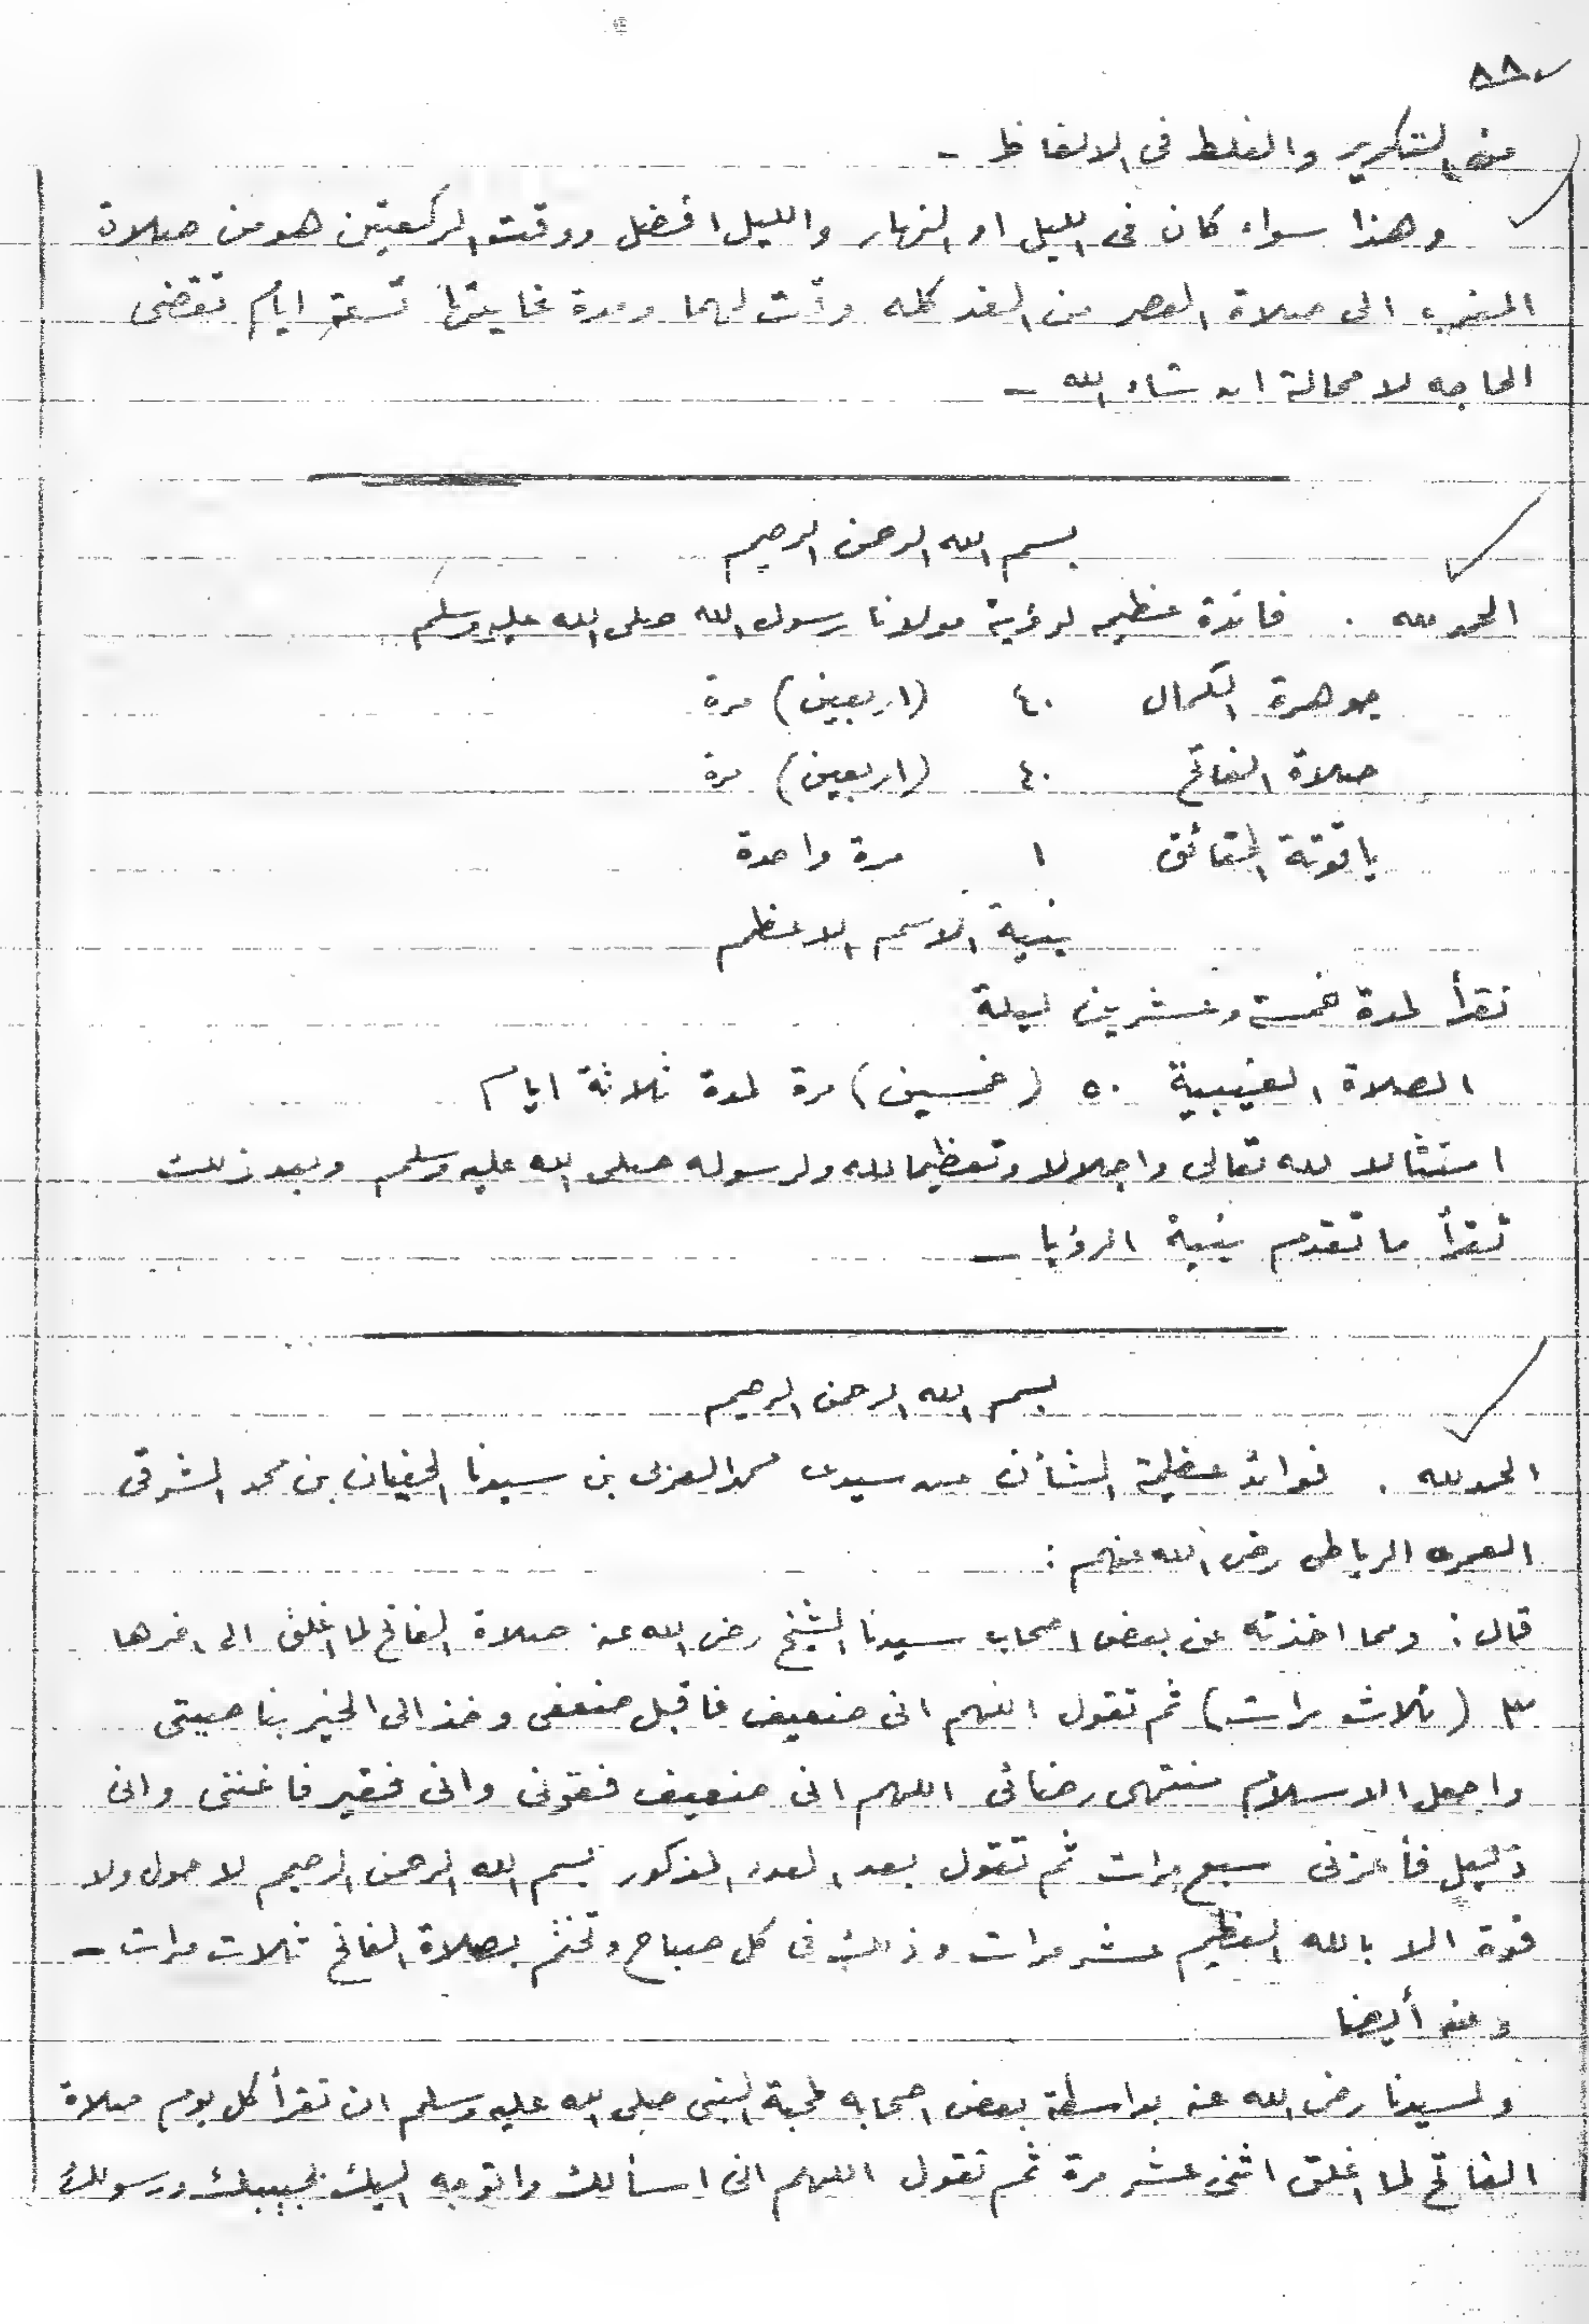 ٨٨
من التكرير والغلط فى الالفاظ -
وهذا سواء كان فى الليل او النهار والليل افضل ووقت الركعتين هو من صلاة
المغرب الى صلاة العصر من الغد كله وقت لهما ومدة غايتها تسعة ايام تقضى
الحاجه لا محالة ان شاء الله -
بسم الله الرحمن الرحيم
الحمد لله . فائدة عظيمه لرؤية مولانا رسول الله صلى الله عليه وسلم
جوهرة الكمال ٤٠ (اربعين) مرة
صلاة الفاتح ٤٠ (اربعين) مرة
ياقوتة الحقائق ١ مرة واحدة
بنية الاسم الاعظم
تقرأ لمدة خمسة وعشرين ليلة
الصلاة الغيبية ٥٠ (خمسين) مرة لمدة ثلاثة ايام
امتثالا لله تعالى واجلالا وتعظيما لله ولرسوله صلى الله عليه وسلم وبعد ذلك
تقرأ ما تقدم بنية الرؤيا -
بسم الله الرحمن الرحيم
الحمد لله . فوائد عظيمة الشأن عن سيدى محمد العربى بن سيدنا بن محمد الشرقى
العمرى الرباطى رضى الله عنهم :
قال : ومما اخذته عن بعض اصحاب سيدنا الشيخ رضى الله عنه صلاة الفاتح لما اغلق الى اخرها
٣ (ثلاث مرات) ثم تقول اللهم انى ضعيف فاقبل ضعفى وخذ الى الخير بناصيتى
واجعل الاسلام منتهى رضائى اللهم انى ضعيف فقونى وانى فقير فاغننى وانى
ذليل فأعزنى سبع مرات ثم تقول بعد العدد المذكور بسم الله الرحمن الرحيم لا حول ولا
قوة الا بالله العظيم عشر مرات وذلك فى كل صباح وتختم بصلاة الفاتح ثلاث مرات -
وعنه أيضا
ولسيدنا رضى الله عنه بواسطة بعض اصحابه لمحبة النبى صلى الله عليه وسلم ان تقرأ كل يوم صلاة
الفاتح لما اغلق اثنى عشر مرة ثم تقول اللهم انى اسألك واتوجه اليك بحبيبك ورسولك